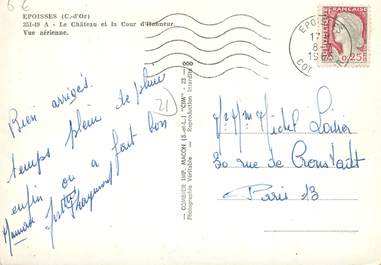 6€
EPOISSES (C.-d'Or)
351-49 A - Le Château et la Cour d'Honneur.
Vue aérienne.
Bien arrivés.
temps plein de pluie
enfin on a fait bon
Maman
Raymond
21
COMBIER IMP. MACON (S.-et-L.) "CIM"
Photographie Véritable - Reproduction Interdite
EPOISSES
17
8
COTE D'OR
FRANÇAISE
0,25
Mr Mme Michel
30 rue de Cronstadt
Paris 15